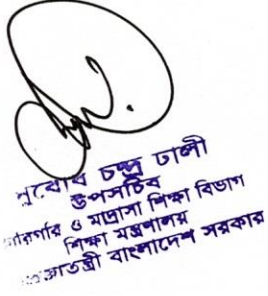 সুবোধ চন্দ্র ঢালী
উপসচিব
কারিগরি ও মাদ্রাসা শিক্ষা বিভাগ
শিক্ষা মন্ত্রণালয়
গণপ্রজাতন্ত্রী বাংলাদেশ সরকার